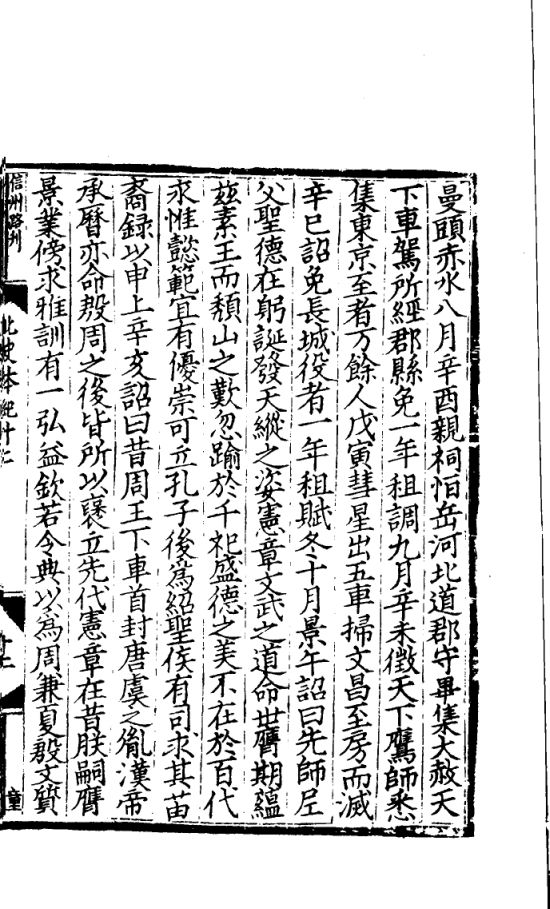 曼頭赤水八月辛酉親祠恒岳河北道郡守畢集大赦天
下車駕所經郡縣免一年租調九月辛未徵天下鷹師悉
集東京至者万餘人戊寅彗星出五車掃文昌至房而滅
辛巳詔免長城役者一年租賦冬十月景午詔曰先師尼
父聖德在躬誕發天縱之姿憲章文武之道命世膺期蘊
兹素王而頹山之歎忽踰於千祀盛德之美不在於百代
永惟懿範宜有優崇可立孔子後爲紹聖侯有司求其苗
裔録以申上辛亥詔曰昔周王下車首封唐虞之胤漢帝
承曆亦命殷周之後皆所以襃立先代憲章在昔朕嗣膺
景業傍求雅訓有一弘益欽若令典以爲周兼夏殷文質
信州路刋
北史本紀十二
十二
童